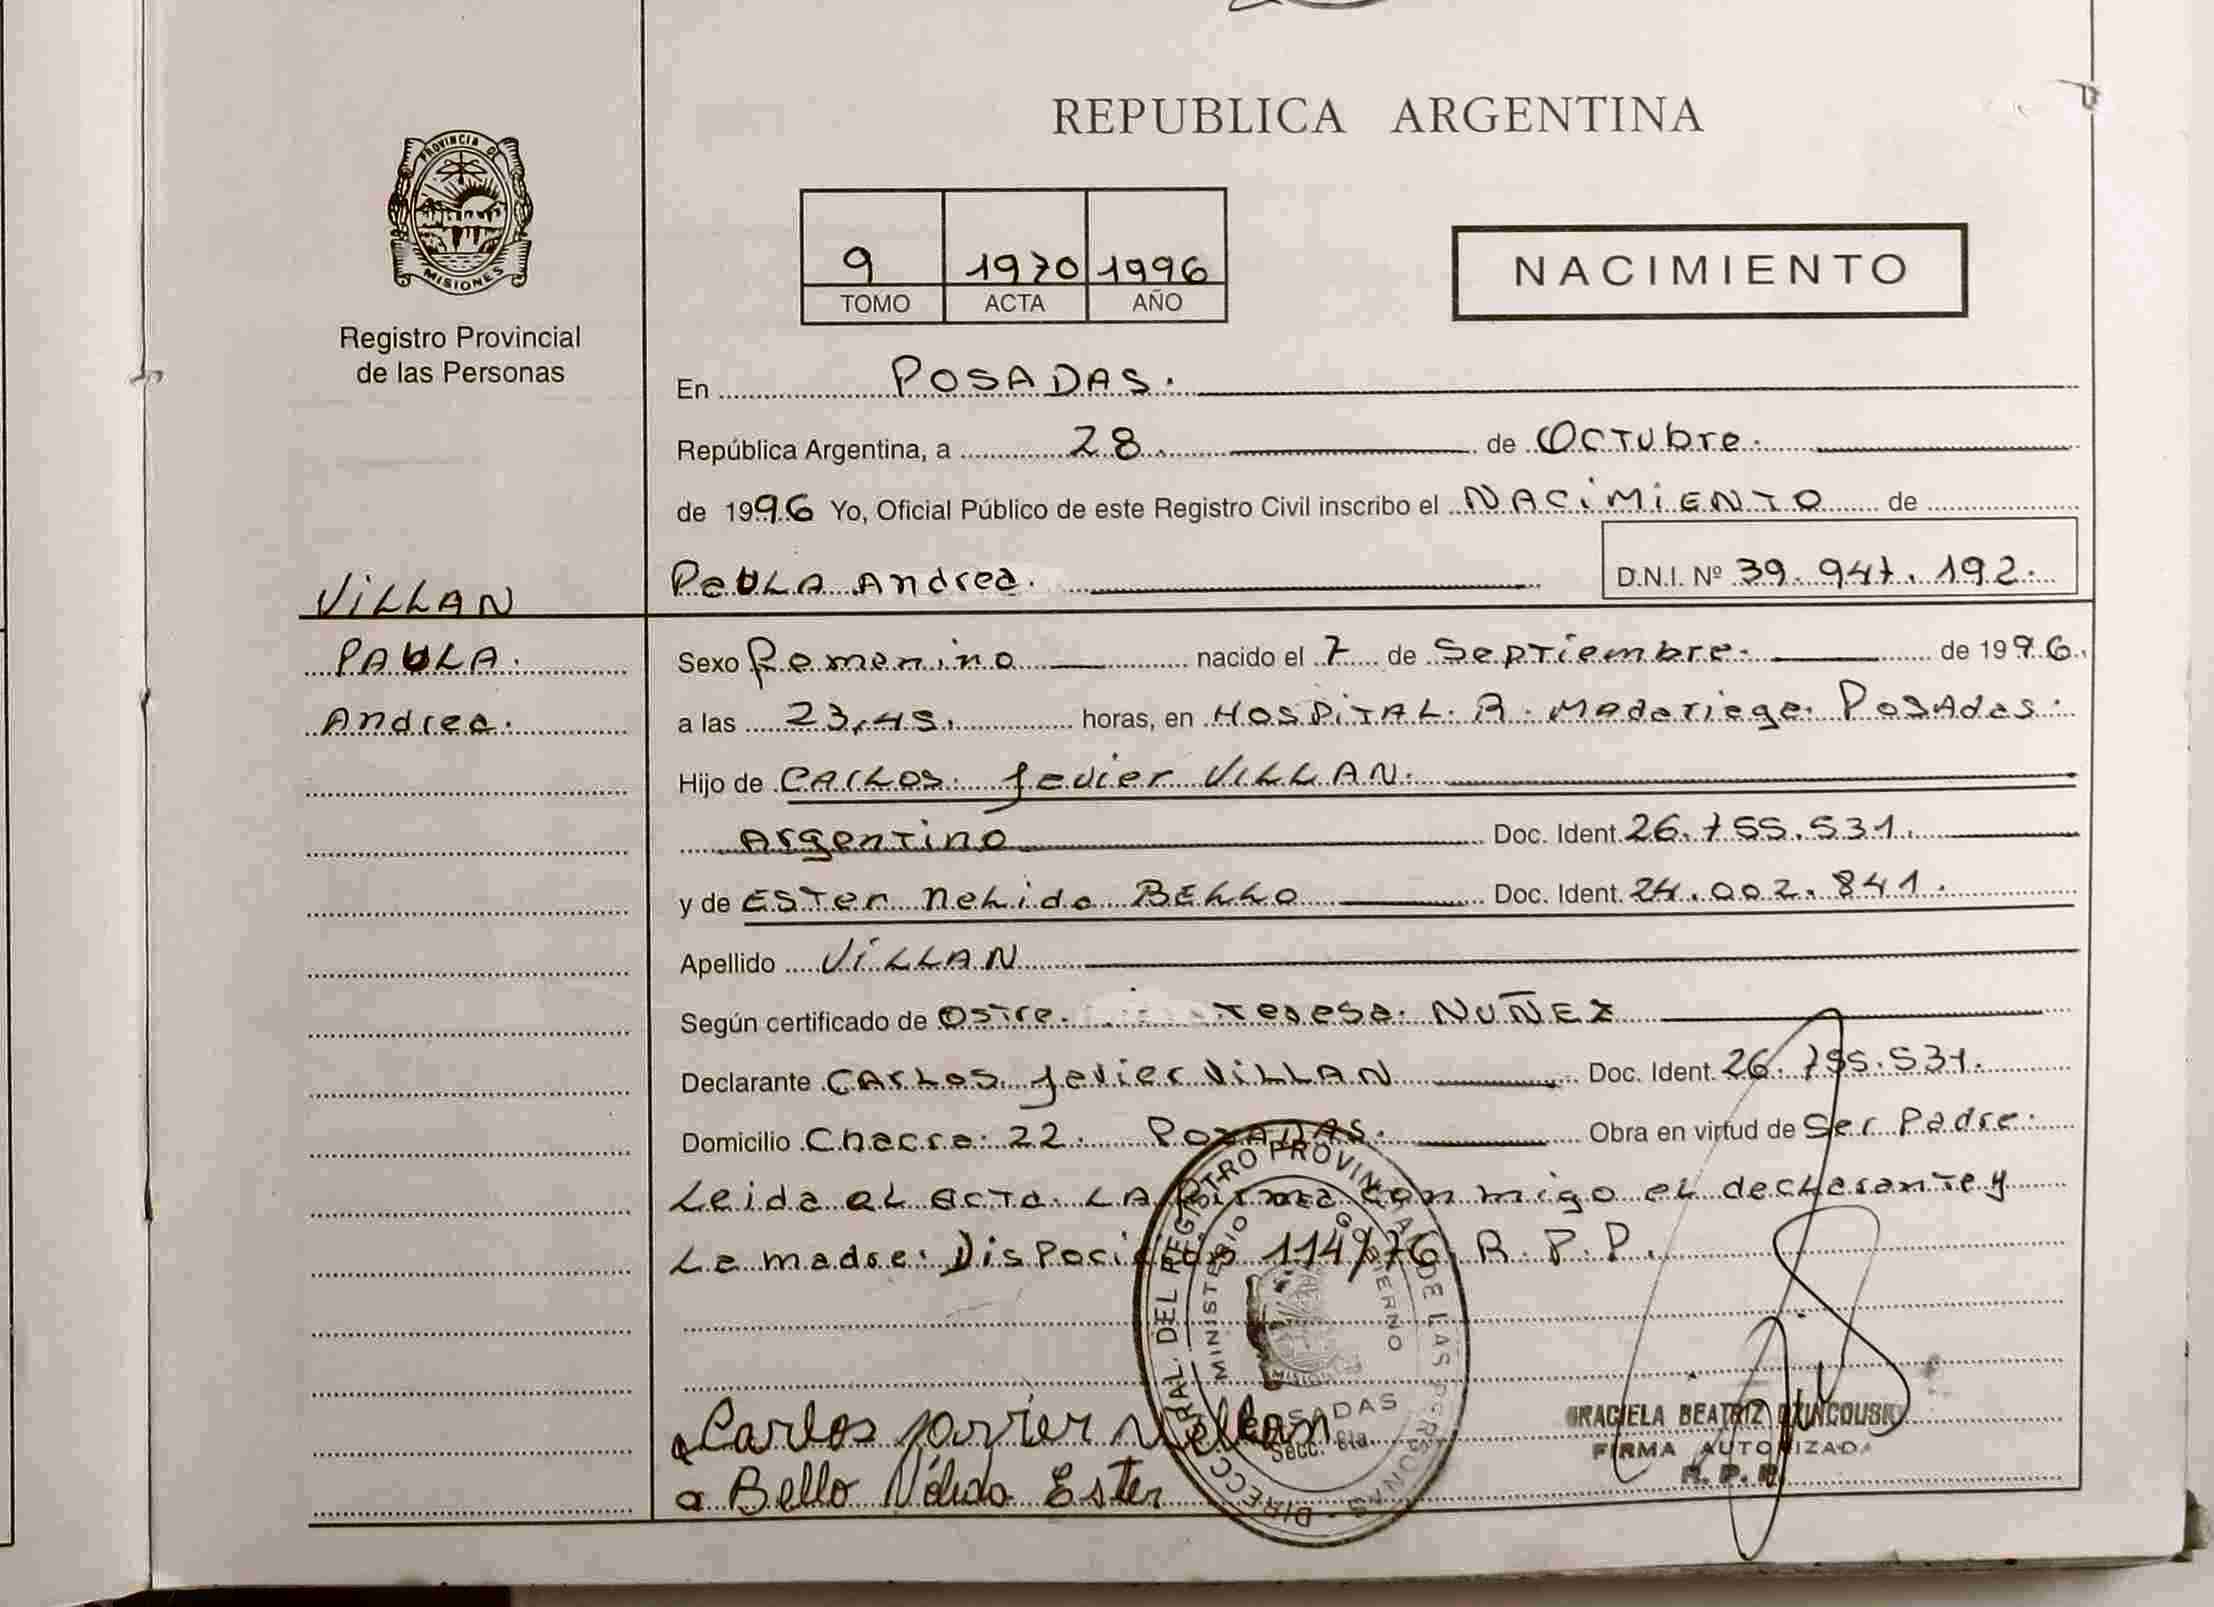 PROVINCIA DE
MISIONES
Registro Provincial
de las Personas
REPUBLICA ARGENTINA
9 1970 1996
TOMO ACTA AÑO
NACIMIENTO
En POSADAS.
República Argentina, a 28. de Octubre.
de 1996 Yo, Oficial Público de este Registro Civil inscribo el NACIMIENTO de
VILLAN
PAULA Andrea. D.N.I. Nº 39.941.192.
PAULA.
Andrea.
Sexo Femenino nacido el 7 de Septiembre. de 1996.
a las 23,45. horas, en HOSPITAL. R. Madariaga. Posadas.
Hijo de CARLOS. Javier VILLAN.
Argentino Doc. Ident. 26.755.531.
y de ESTer Nelida BELLO Doc. Ident. 24.002.841.
Apellido VILLAN
Según certificado de Ostre. Teresa. NUÑEZ
Declarante CARLOS Javier VILLAN Doc. Ident. 26.755.531.
Domicilio Chacra. 22. POSADAS. Obra en virtud de Ser Padre.
Leida el acta. LA Firma conmigo el declarante y
La madre. Disposición 114/76 R.P.P.
DIRECC RAL. DEL REGISTRO PROVINCIAL DE LAS PERSONAS
MINISTERIO GOBIERNO
POSADAS
Secc. 6ta.
Carlos Javier Villan
a Bello Nélida Ester
GRACIELA BEATRIZ
FIRMA AUTORIZADA
R. P. P.